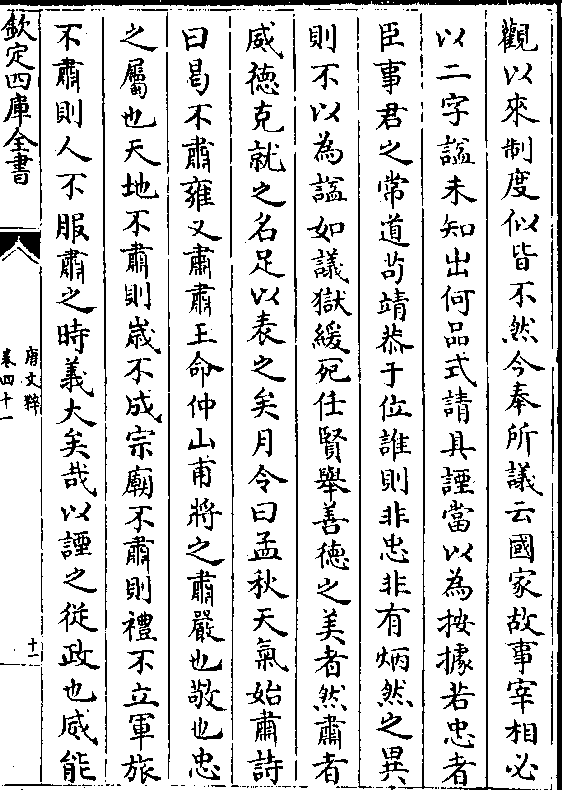 觀以來制度似皆不然今奉所議云國家故事宰相必
以二字謚未知出何品式請具諲當以為按據若忠者
臣事君之常道苟靖恭于位誰則非忠非有炳然之異
則不以為謚如議獄緩死任賢舉善德之美者然肅者
威德克就之名足以表之矣月令曰孟秋天氣始肅詩
曰曷不肅雍又肅肅王命仲山甫將之肅嚴也敬也忠
之屬也天地不肅則嵗不成宗廟不肅則禮不立軍旅
不肅則人不服肅之時義大矣哉以諲之從政也威能
欽定四庫全書
唐文粹
卷四十一
十一